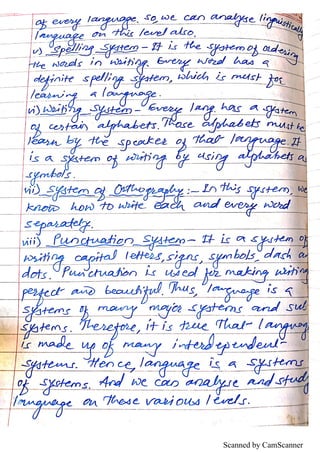 of every language. so, we can analyse linguistically
language on this level also.
v) Spelling System – It is the system of ordering
the words in writing. Every word has a
definite spelling system, which is must for
learning a language.
vi) Writing System – Every lang has a system
of certain alphabets. Those alphabets must be
learn by the speaker of that language. It
is a system of writing by using alphabets as
symbols.
vii) System of Orthography :– In this system, we
know how to write each and every word
separately.
viii) Punctuation System – It is a system of
writing capital letters, signs, symbols, dash a
dots. Punctuation is used for making writing
perfect and beautiful. Thus, language is a
systems of many major systems and sub
systems. Therefore, it is true that languag
is made up of many interdependent
systems. Hence, language is a systems
of systems. And we can analyse and study
language on these various levels.
Scanned by CamScanner